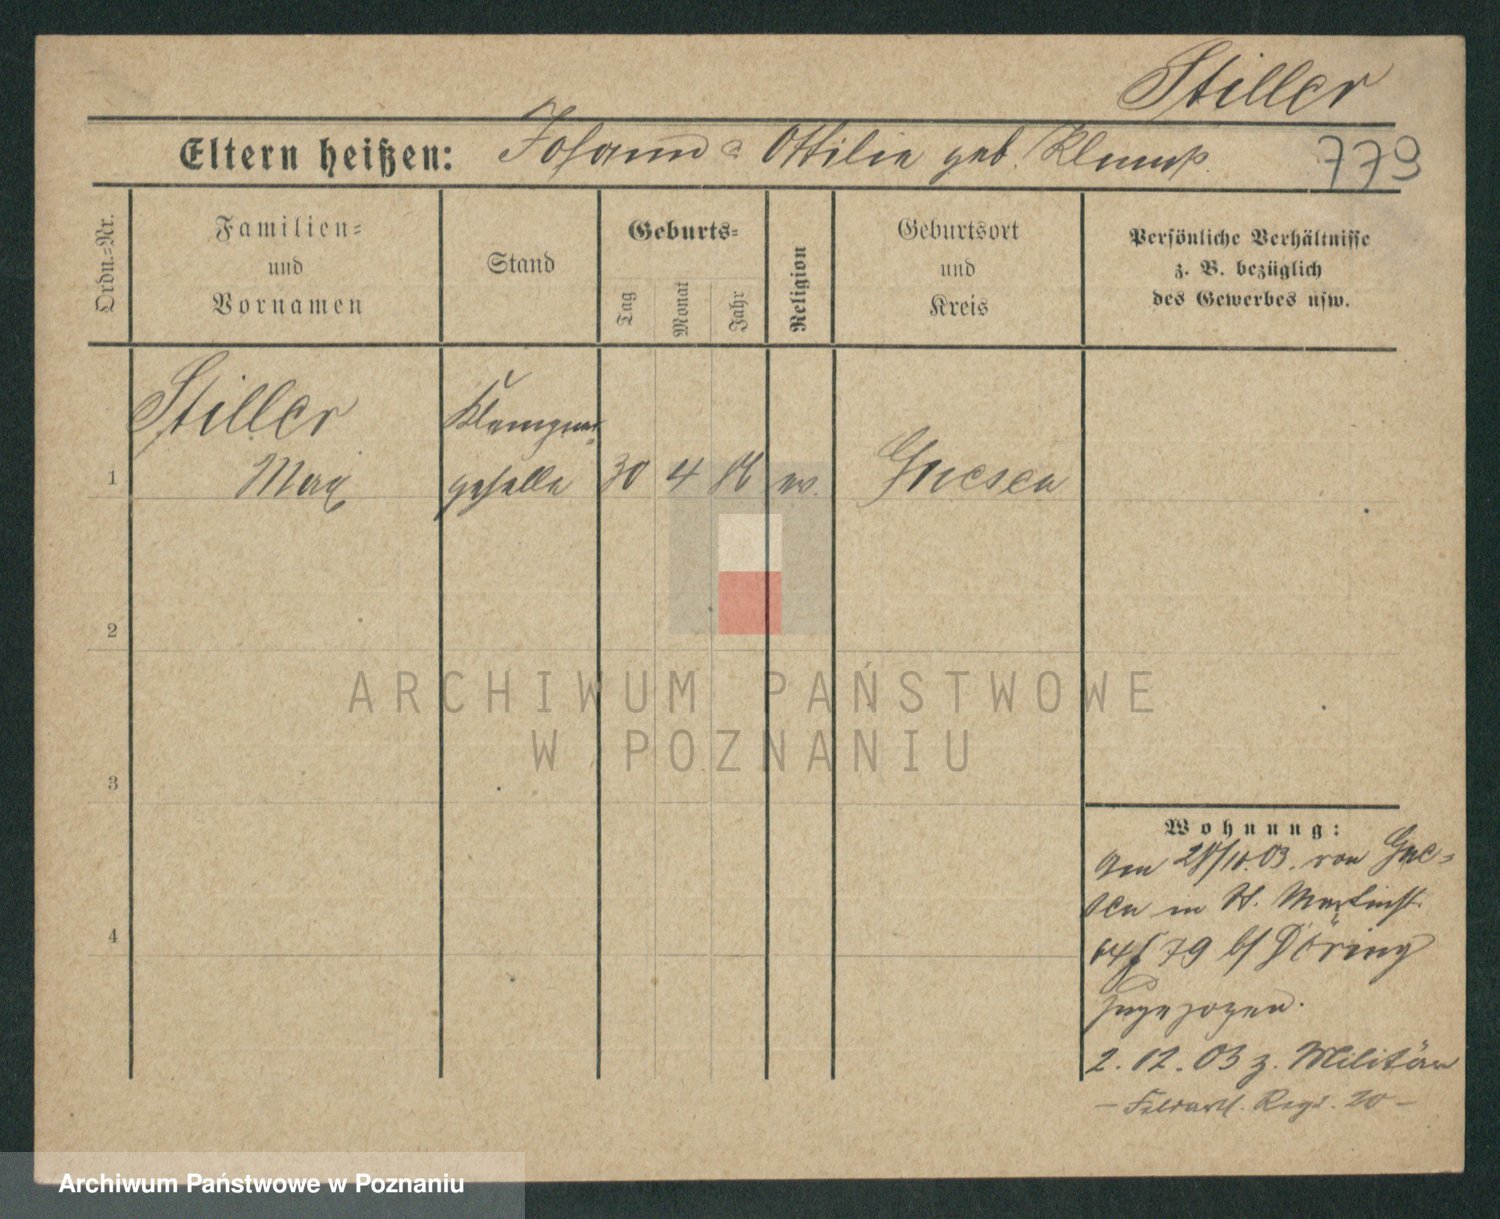 Stiller
Eltern heißen: Johann & Ottilie geb. Klump.
779
Ordn.-Nr.
Familien- und Vornamen
Stand
Geburts-
Tag
Monat
Jahr
Religion
Geburtsort und Kreis
Persönliche Verhältnisse
z. B. bezüglich
des Gewerbes usw.
Stiller
Klempner-
1 Max geselle 30 4 ev. Gnesen
2
ARCHIWUM PAŃSTWOWE
W POZNANIU
3
4
Wohnung:
Am von Gne-
sen in St. Martinstr.
79 b/ Döring
zugezogen.
2. 12. 03 z. Militär
– Feldartl. Regt. 20 –
Archiwum Państwowe w Poznaniu